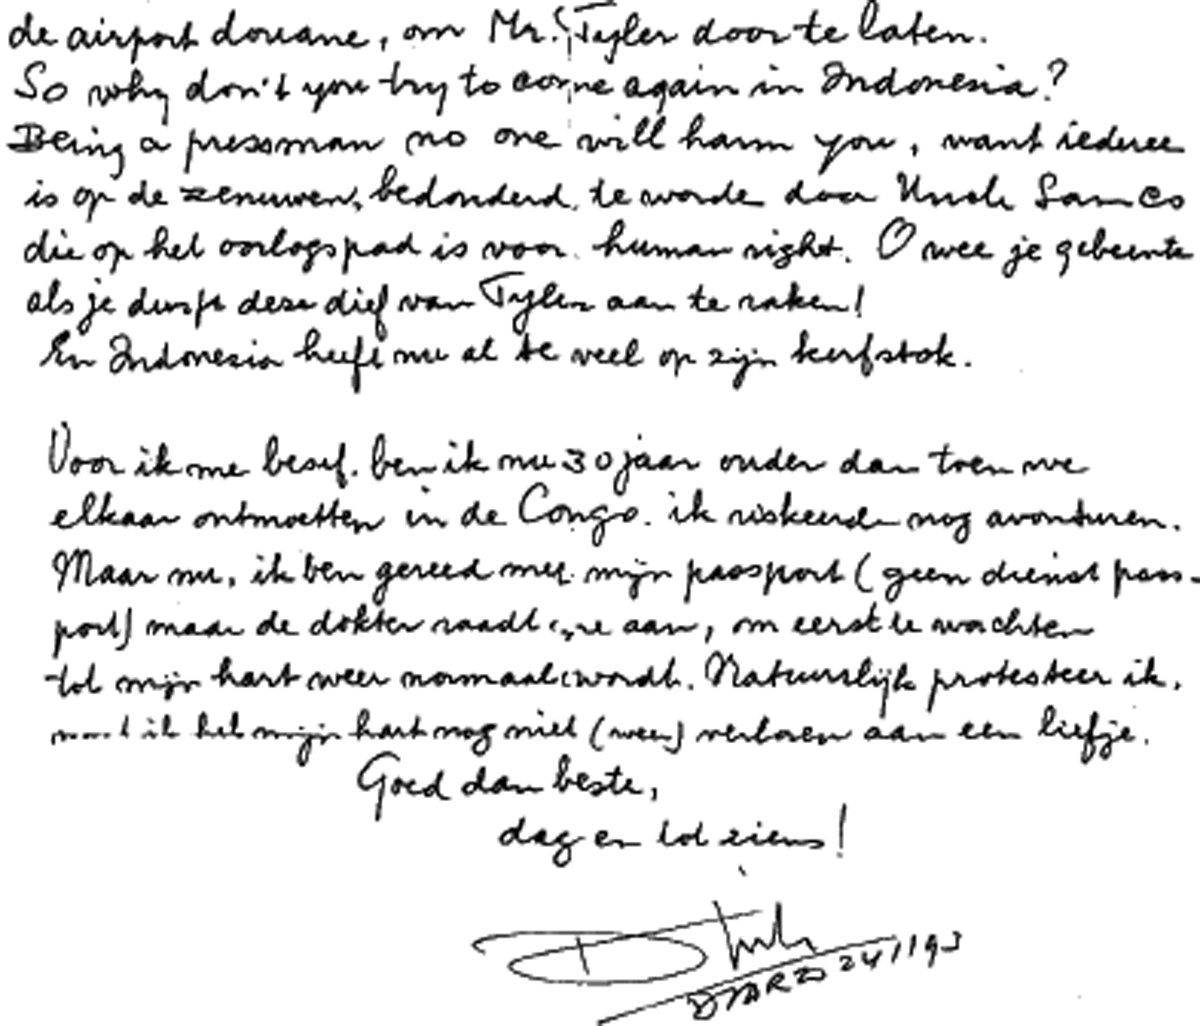 de airport douane, om Mr. Tyler door te laten.
So why don't you try to come again in Indonesia?
Being a pressman no one will harm you, want iederee
is op de zenuwen, bedonderd te worde door Uncle Sam Co
die op het oorlogspad is voor human right. O wee je gebeente
als je durft deze dief van Tyler aan te raken!
En Indonesia heeft nu al te veel op zijn kerfstok.
Voor ik me besef. ben ik nu 30 jaar ouder dan toen we
elkaar ontmoetten in de Congo. ik riskeerde nog avonturen.
Maar nu, ik ben gereed met mijn paspoort (geen dienst pas-
port) maar de dokter raadt me aan, om eerst te wachten
tot mijn hart weer normaal wordt. Natuurlijk protesteer ik,
want ik heb mijn hart nog niet (weer) verloren aan een liefje.
Goed dan beste,
dag en tot ziens!
24/1 93